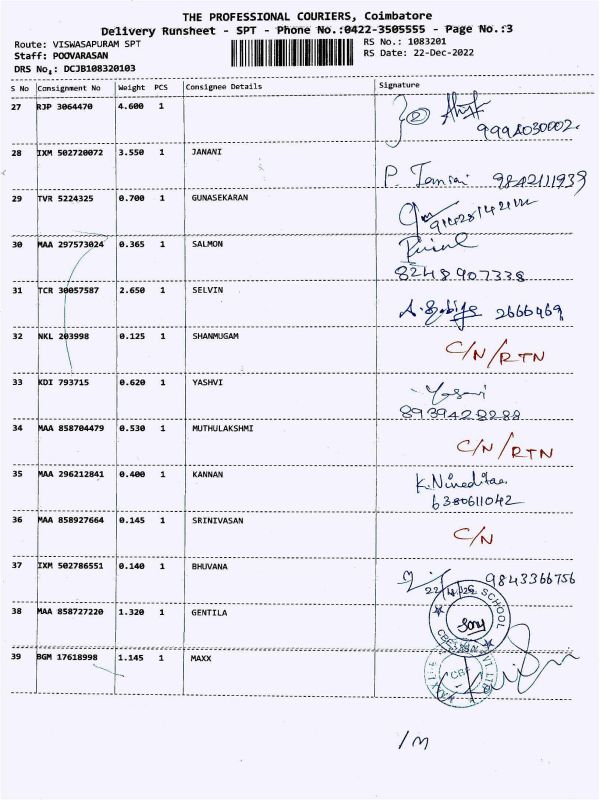 THE PROFESSIONAL COURIERS, Coimbatore
Delivery Runsheet - SPT - Phone No.:0422-3505555 - Page No.:3
Route: VISWASAPURAM SPT RS No.: 1083201
Staff: POOVARASAN RS Date: 22-Dec-2022
DRS No.: DCJB108320103
S No Consignment No Weight PCS Consignee Details Signature
27 RJP 3064470 4.600 1
9994030002
28 IXM 502720072 3.550 1 JANANI
P. 9842111939
29 TVR 5224325 0.700 1 GUNASEKARAN
30 MAA 297573024 0.365 1 SALMON
8248907338
31 TCR 30057587 2.650 1 SELVIN
2666469
32 NKL 203998 0.125 1 SHANMUGAM
C/N/RTN
33 KDI 793715 0.620 1 YASHVI
8939428288
34 MAA 858704479 0.530 1 MUTHULAKSHMI
C/N/RTN
35 MAA 296212841 0.400 1 KANNAN
6380611042
36 MAA 858927664 0.145 1 SRINIVASAN
C/N
37 IXM 502786551 0.140 1 BHUVANA
9843366756
38 MAA 858727220 1.320 1 GENTILA
SCHOOL
39 BGM 17618998 1.145 1 MAXX
CBE